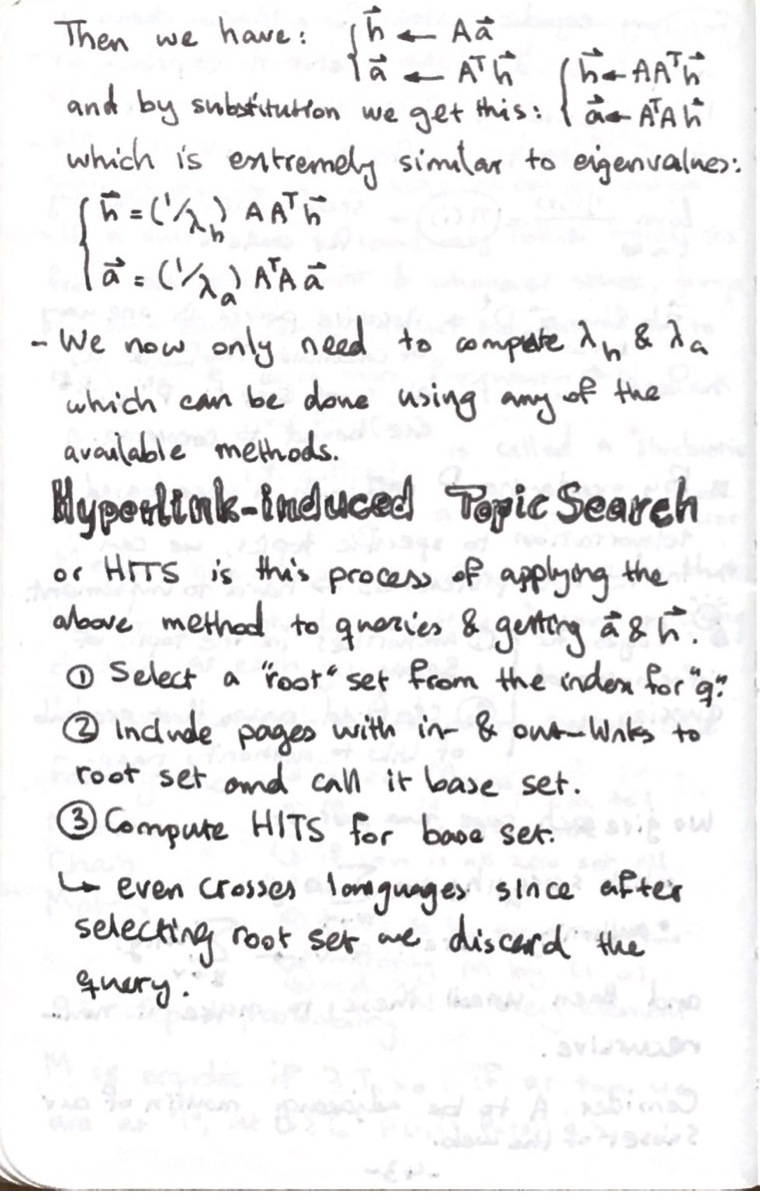 Then we have: { h⃗ ← A a⃗
a⃗ ← Aᵀh⃗ { h⃗ ← AAᵀh⃗
and by substitution we get this: a⃗ ← AᵀA h⃗
which is extremely similar to eigenvalues:
{ h⃗ = (1/λh) A Aᵀ h⃗
a⃗ = (1/λa) AᵀA a⃗
- We now only need to compute λh & λa
which can be done using any of the
available methods.
Hyperlink-induced Topic Search
or HITS is this process of applying the
above method to queries & getting a⃗ & h⃗.
① Select a "root" set from the index for "q".
② Include pages with in- & out-links to
root set and call it base set.
③ Compute HITS for base set.
↳ even crosses languages since after
selecting root set we discard the
query.